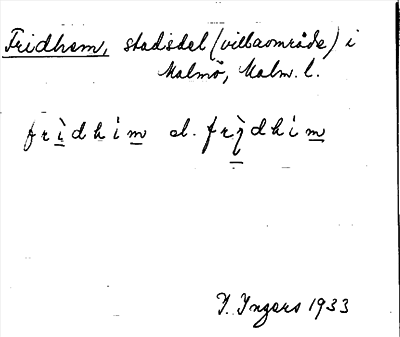 Fridhem, stadsdel (villaområde) i
Malmö, Malm. l.
frìdhim el. frỳdhim
I. Ingers 1933